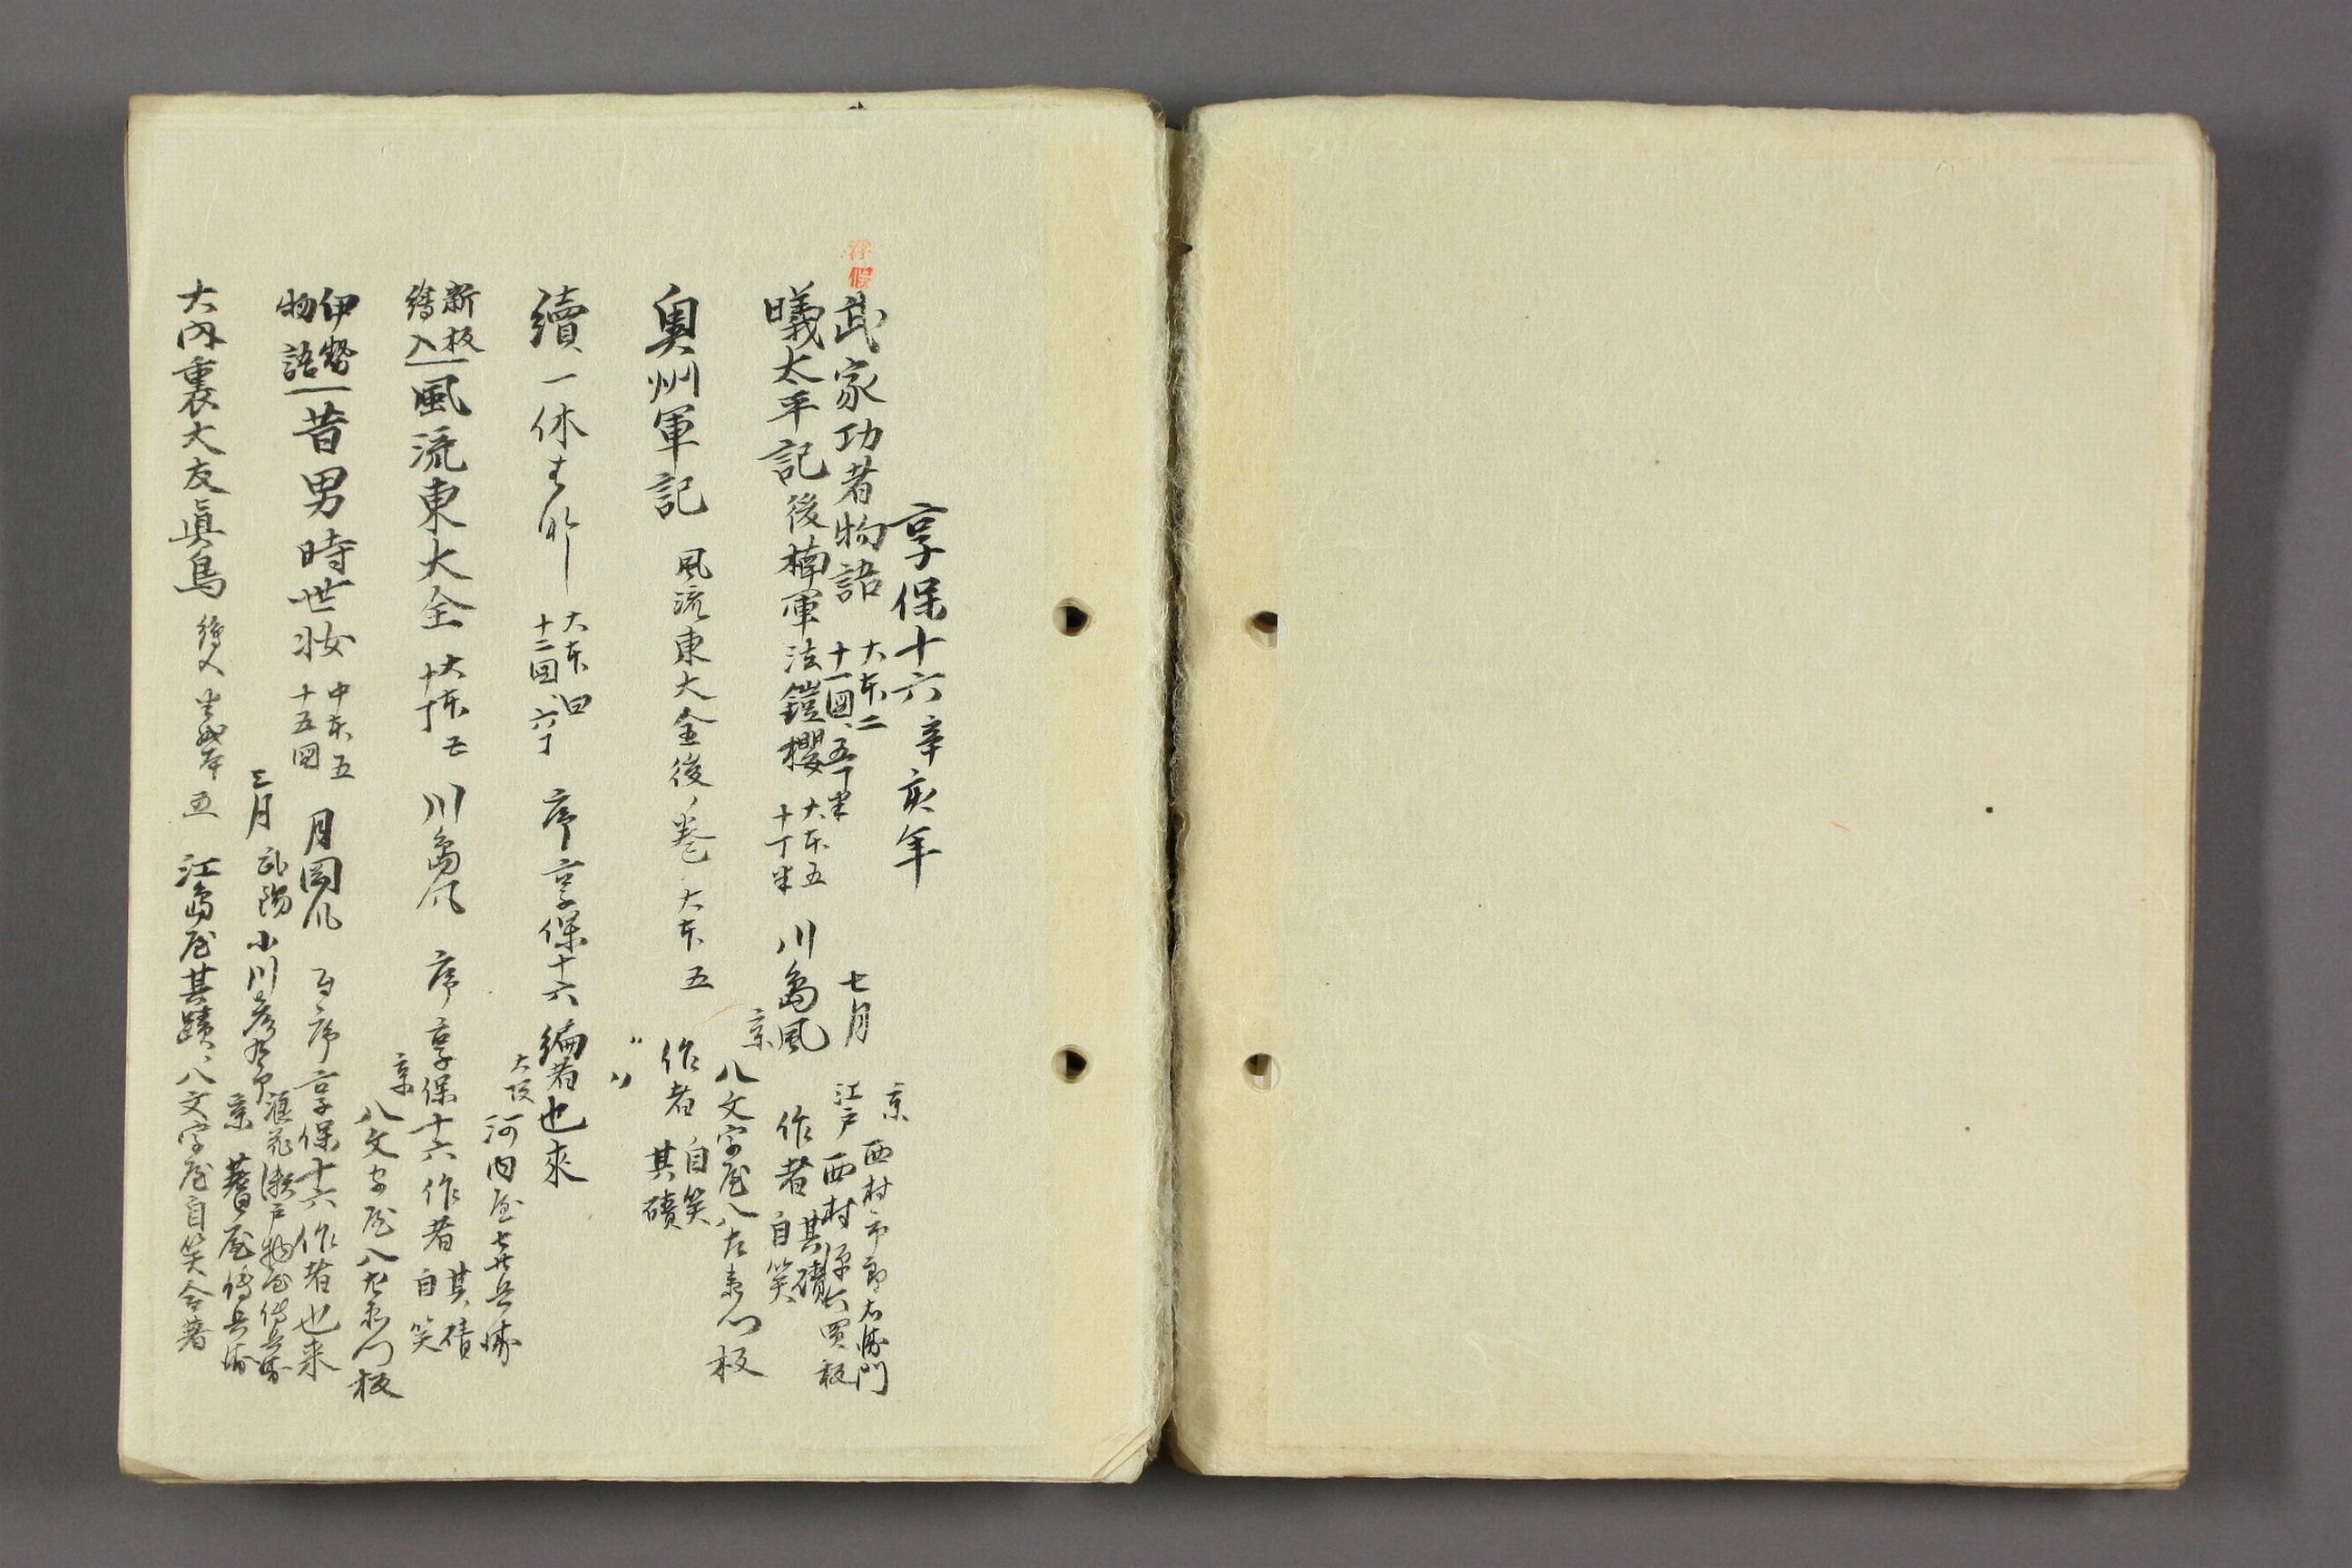 享保十六辛亥年
浮
假
武家功者物語
大本二
十一図、五丁半
七月
京 西村市郎右衛門
江戸 西村源六買板
曦太平記後楠軍法鎧櫻
大本五
十丁半
川島風
作者
其磧
自笑
京 八文字屋八左衛門板
奥州軍記
風流東大全後ノ巻 大本五
作者
自笑
其磧
〃 〃
續一休
大本四
十二図、六丁
序享保十六 編者也来
大坂 河内屋宇兵衛
新板
繪入
風流東大全
大本五
十丁
川島風
序享保十六
作者
其磧
自笑
京 八文字屋八左衛門板
伊勢
物語
昔男時世妝
中本五
十五図
月岡風
自序享保十六 作者也来
三月
武陽 小川彦九郎
浪花 瀬戸物屋伝兵衛
京 蓍屋傳兵衛
大内裏大友眞鳥 繪入 半紙本五 江島屋其蹟、八文字屋自笑合著